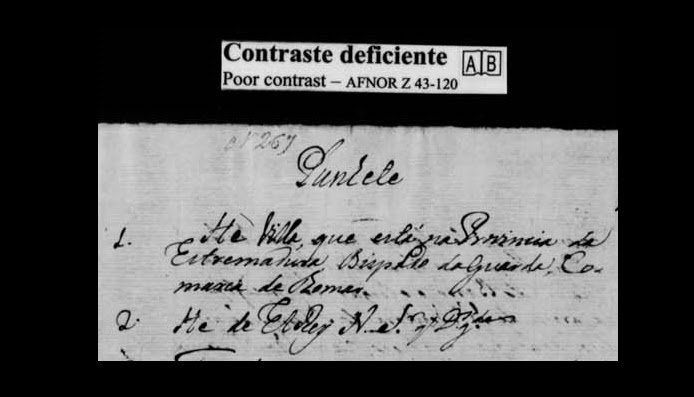 Contraste deficiente
Poor contrast – AFNOR Z 43-120
A B
nº 267
Punhete
1. He Villa, que está na Provincia da
Estremadura Bispado da Guarda, Co-
marca de Tomar.
2. He de ElRey N. Sr.